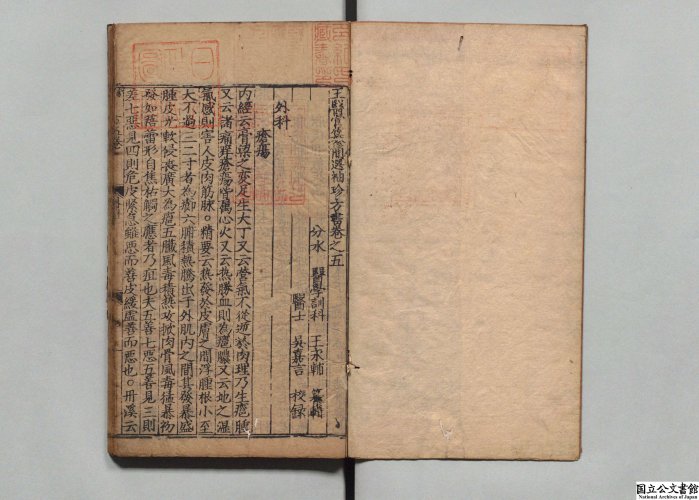 王醫官簡選袖珍方書卷之五
分水　醫學訓科　王永輔　纂輯
醫士　吳嘉言　校錄
外科
瘡瘍
內經云膏粱之變足生大丁又云營氣不從逆於肉理乃生癰腫
又云諸痛痒瘡瘍皆屬心火又云熱勝血則為癰膿又云地之濕
氣感則害人皮肉筋脉○精要云熱發於皮膚之間浮腫根小至
大不過二三寸者為癤六腑積熱騰出于外肌肉之間其發暴盛
腫皮光軟侵丧廣大為癰五臟風毒積熱攻掀肉骨風毒猛暴初
發如蓓蕾形自焦枯觸之應者乃疽也夫五善七惡五善見三則
差七惡見四則危皮緊急雖惡而善皮緩虛善而惡也○丹溪云
国立公文書館
National Archives of Japan